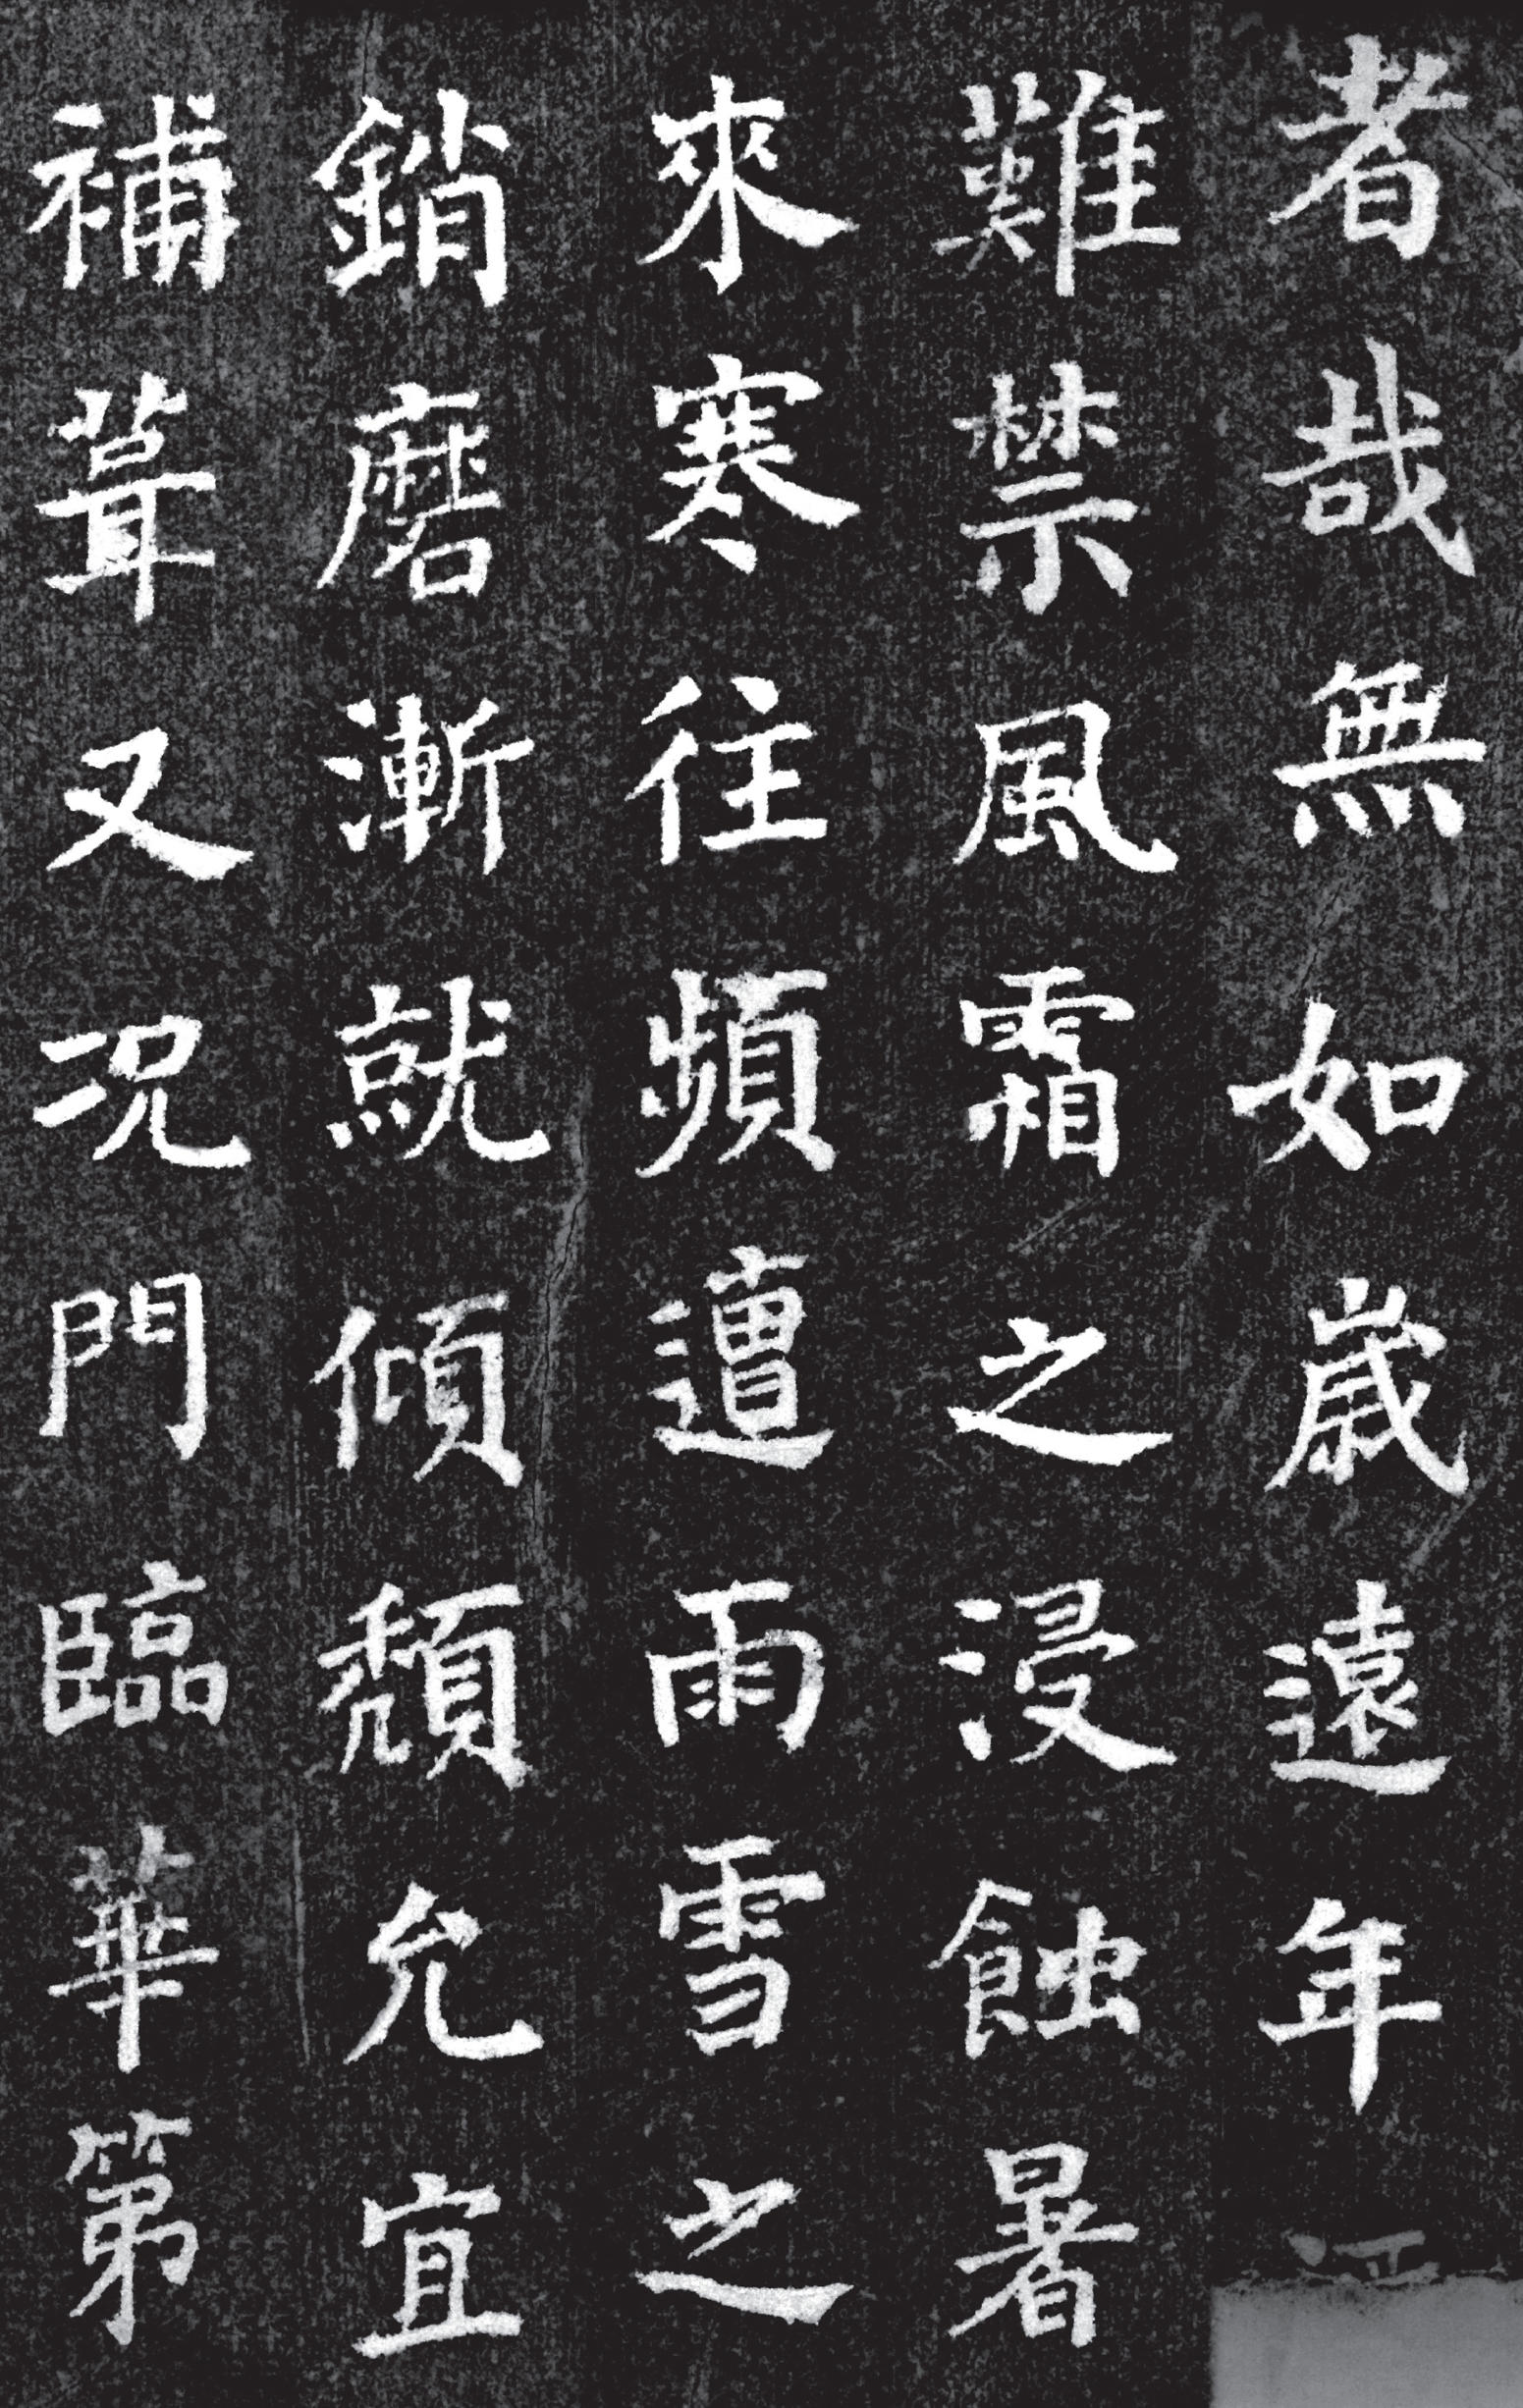 者哉無如歲遠年
難禁風霜之浸蝕暑
來寒往頻遭雨雪之
銷磨漸就傾頹允宜
補葺又況門臨華第